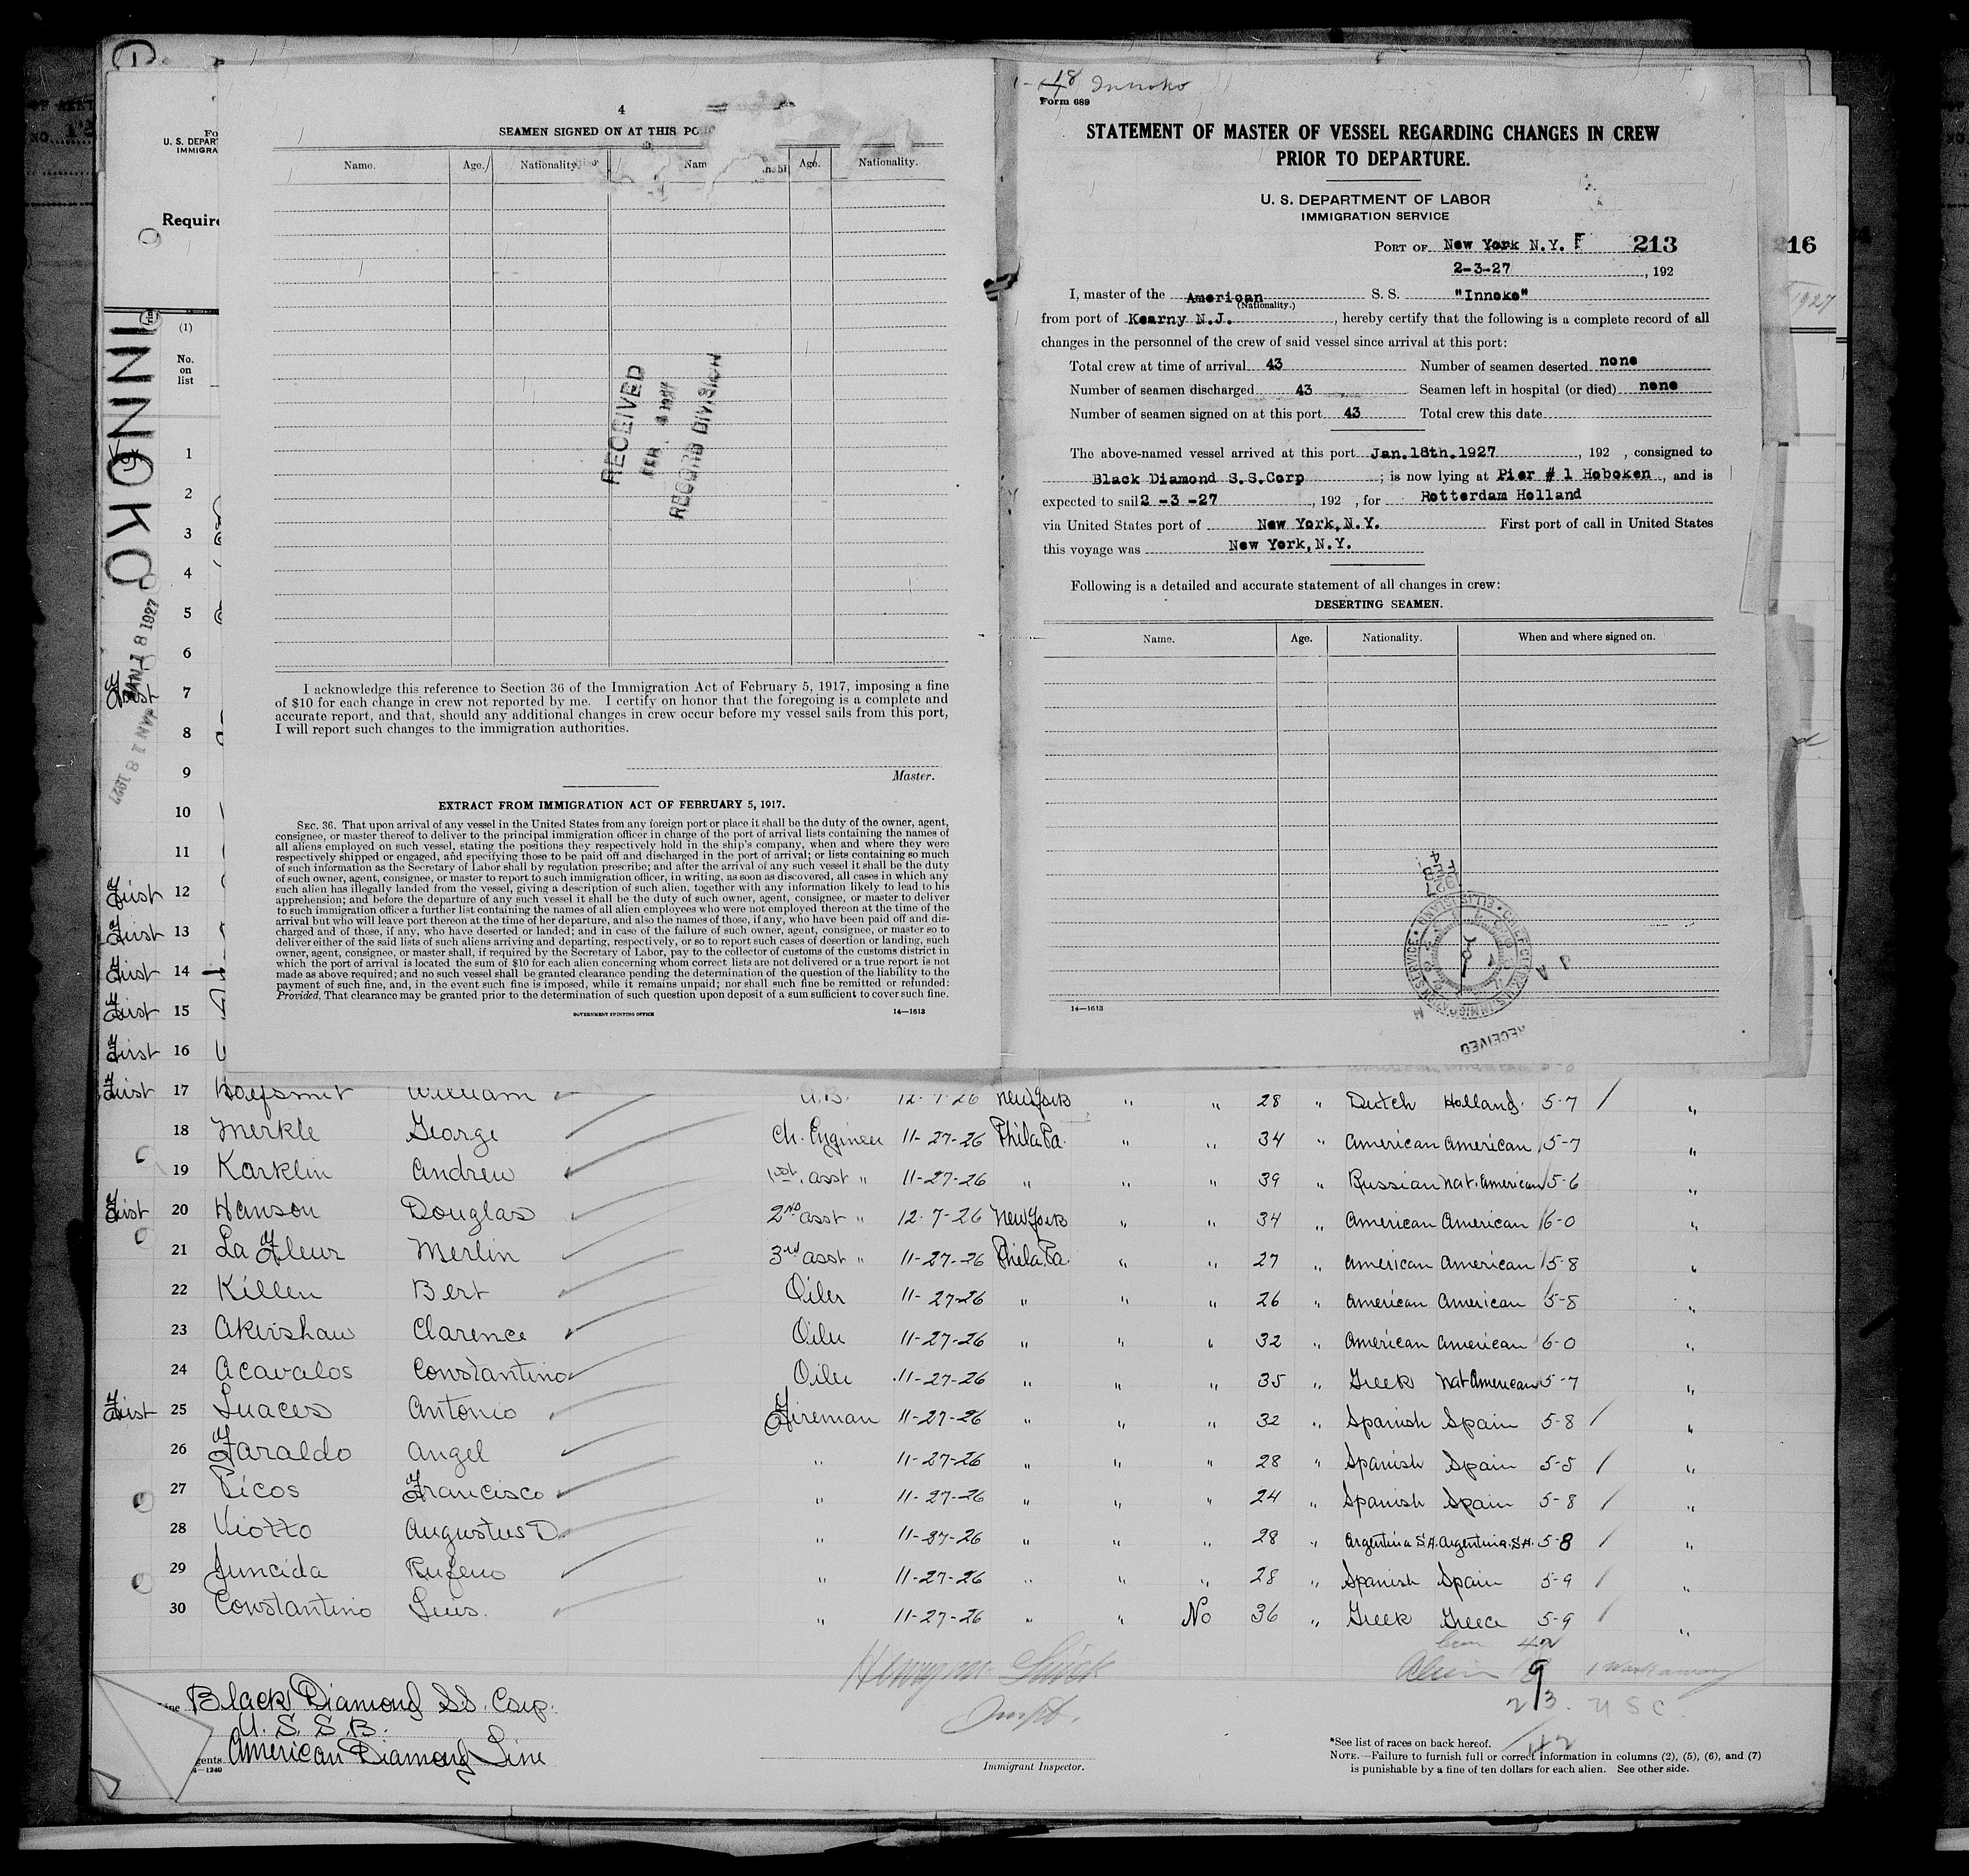 4
SEAMEN SIGNED ON AT THIS
Name. Age. Nationality. Age. Nationality.
RECEIVED
RECORD DIVISION
I acknowledge this reference to Section 36 of the Immigration Act of February 5, 1917, imposing a fine
of $10 for each change in crew not reported by me. I certify on honor that the foregoing is a complete and
accurate report, and that, should any additional changes in crew occur before my vessel sails from this port,
I will report such changes to the immigration authorities.
Master.
EXTRACT FROM IMMIGRATION ACT OF FEBRUARY 5, 1917.
SEC. 36. That upon arrival of any vessel in the United States from any foreign port or place it shall be the duty of the owner, agent,
consignee, or master thereof to deliver to the principal immigration officer in charge of the port of arrival lists containing the names of
all aliens employed on such vessel, stating the positions they respectively hold in the ship's company, when and where they were
respectively shipped or engaged, and specifying those to be paid off and discharged in the port of arrival; or lists containing so much
of such information as the Secretary of Labor shall by regulation prescribe; and after the arrival of any such vessel it shall be the duty
of such owner, agent, consignee, or master to report to such immigration officer, in writing, as soon as discovered, all cases in which any
such alien has illegally landed from the vessel, giving a description of such alien, together with any information likely to lead to his
apprehension; and before the departure of any such vessel it shall be the duty of such owner, agent, consignee, or master to deliver
to such immigration officer a further list containing the names of all alien employees who were not employed thereon at the time of the
arrival but who will leave port thereon at the time of her departure, and also the names of those, if any, who have been paid off and dis-
charged and of those, if any, who have deserted or landed; and in case of the failure of such owner, agent, consignee, or master so to
deliver either of the said lists of such aliens arriving and departing, respectively, or so to report such cases of desertion or landing, such
owner, agent, consignee, or master shall, if required by the Secretary of Labor, pay to the collector of customs of the customs district in
which the port of arrival is located the sum of $10 for each alien concerning whom correct lists are not delivered or a true report is not
made as above required; and no such vessel shall be granted clearance pending the determination of the question of the liability to the
payment of such fine, and, in the event such fine is imposed, while it remains unpaid; nor shall such fine be remitted or refunded:
Provided, That clearance may be granted prior to the determination of such question upon deposit of a sum sufficient to cover such fine.
GOVERNMENT PRINTING OFFICE 14—1613
18 Innoko
Form 689
STATEMENT OF MASTER OF VESSEL REGARDING CHANGES IN CREW
PRIOR TO DEPARTURE.
U. S. DEPARTMENT OF LABOR
IMMIGRATION SERVICE
PORT OF New York N.Y. 213
2-3-27, 192
I, master of the American S. S. "Innoko"
(Nationality.)
from port of Kearny N.J., hereby certify that the following is a complete record of all
changes in the personnel of the crew of said vessel since arrival at this port:
Total crew at time of arrival 43 Number of seamen deserted none
Number of seamen discharged 43 Seamen left in hospital (or died) none
Number of seamen signed on at this port 43 Total crew this date
The above-named vessel arrived at this port Jan.18th.1927, 192 , consigned to
Black Diamond S.S.Corp; is now lying at Pier # 1 Hoboken, and is
expected to sail 2 -3 -27, 192 , for Rotterdam Holland
via United States port of New York,N.Y. First port of call in United States
this voyage was New York,N.Y.
Following is a detailed and accurate statement of all changes in crew:
DESERTING SEAMEN.
Name. Age. Nationality. When and where signed on.
14—1613
RECEIVED
16
INNOKO
JAN 18 1927
U. S. DEPAR
IMMIGRA
Require
(1)
No.
on
list
1
2
3
4
5
6
7
8
9
10
11
First 12
First 13
First 14
First 15
First 16
First 17 William A.B. 12-7-26 New York " " 28 " Dutch Holland 5-7 / "
18 Merkle George Ch. Engineer 11-27-26 Phila Pa. " " 34 " American American 5-7 "
19 Karklin Andrew 1st. asst " 11-27-26 " " " 39 " Russian Nat. American 5-6 "
First 20 Hanson Douglas 2nd asst " 12-7-26 New York " " 34 " American American 6-0 "
21 La Fleur Merlin 3rd asst " 11-27-26 Phila Pa. " " 27 " American American 5-8 "
22 Killen Bert Oiler 11-27-26 " " " 26 " American American 5-8 "
23 Akershaw Clarence Oiler 11-27-26 " " " 32 " American American 6-0 "
24 Acavalos Constantino Oiler 11-27-26 " " " 35 " Greek Nat American 5-7 "
First 25 Luaces Antonio Fireman 11-27-26 " " " 32 " Spanish Spain 5-8 / "
26 Faraldo Angel " 11-27-26 " " " 28 " Spanish Spain 5-5 / "
27 Picos Francisco " 11-27-26 " " " 24 " Spanish Spain 5-8 / "
28 Viotto Augustus D. " 11-27-26 " " " 28 " Argentina S.A. Argentina S.A. 5-8 / "
29 Juncida Rufeno " 11-27-26 " " " 28 " Spanish Spain 5-9 / "
30 Constantino Luis. " 11-27-26 " " No 36 " Greek Greece 5-9 / "
Black Diamond S.S. Corp.
U. S. S. B.
gents American Diamond Line
Immigrant Inspector.
U S C.
*See list of races on back hereof.
NOTE.—Failure to furnish full or correct information in columns (2), (5), (6), and (7)
is punishable by a fine of ten dollars for each alien. See other side.